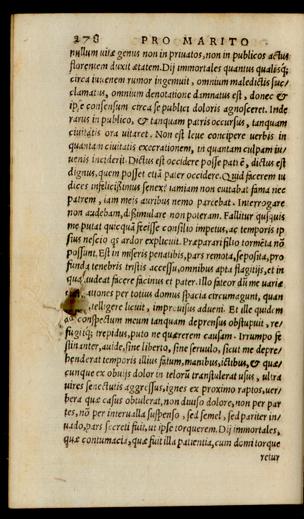 278 PRO MARITO
nullum uitæ genus non in priuatos, non in publicos actus
florentem duxit ætatem. Dij immortales quantus qualisq;
circa iuuenem rumor ingemuit, omnium maledictis suc/
clamatus, omnium denotatione damnatus est, donec &
ipse consensum circa se publici doloris agnosceret. Inde
rarus in publico, & tanquam patris occursus, tanquam
ciuitatis ora uitaret. Non est leue concipere uerbis in
quantam ciuitatis execrationem, in quantam culpam iu/
uenis inciderit. Dictus est occidere posse patrē, dictus est
dignus, quem posset etiā pater occidere. Quid facerem iu
dices infelicissimus senex? iamiam non euitabat fama nec
patrem, iam meis auribus nemo parcebat. Interrogare
non audebam, dissimulare non poteram. Fallitur quisquis
me putat quicquā fecisse consilio impetus, ac temporis ip
sius nescio qs ardor explicuit. Præparari filio tormēta nō
possunt. Est in miseris penatibus, pars remota, seposita, pro
funda tenebris tristis accessu, omnibus apta flagitijs, et in
qua audeat facere facinus et pater. Illo fateor dū me uariæ
cogitationes per totius domus spacia circumagunt, quan
intelligere licuit, improuisus adueni. Et ille quidem
ad conspectum meum tanquam deprensus obstupuit, re/
fugitq; trepidus, puto ne quærerem causam. Irrumpo fe
stinanter, auide, sine liberto, sine seruulo, sicut me depre/
henderat temporis illius fatum, manibus, ictibus, & quæ/
cunque ex obuijs dolor in telorū transtulerat usus, ultra
uires senectutis aggressus, ignes ex proximo raptos, uer/
bera quæ casus obtulerat, non diuiso dolore, non per par
tes, nō per interualla suspenso, sed semel, sed pariter in/
uado, pars secreti fuit, ut ipse torquerem. Dij immortales,
quæ contumacia, quæ fuit illa patientia, cum domi torque
retur